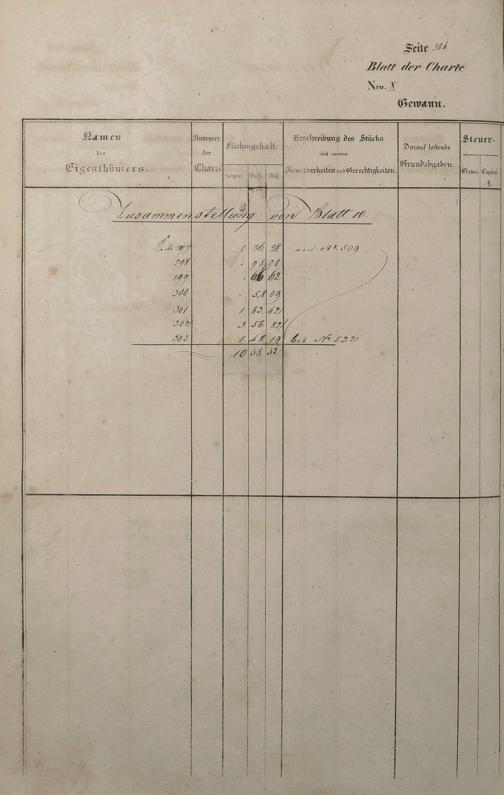 Seite 304
Blatt der Charte
Nro. X
Gewann.
Namen
des
Eigenthümers.
Nummer
der
Charte
Flächengehalt.
Morgen Ruth.
Beschreibung des Stücks
mit seinen
Dienstbarkeiten und Gerechtigkeiten.
Darauf lastende
Grundabgaben.
Steuer-
Classe. Capital.
Zusammenstellung von Blatt 10.
297 1 No. 509
298 . 98 90
299 . 62
300 . 58 09
301 1 63 42
302 3 56 82
303 1 48 19 bis No. 522
10 58 32